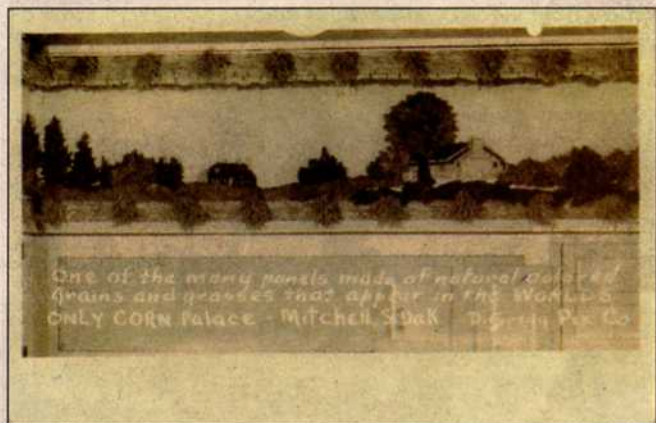 One of the many panels made of natural colored
grains and grasses that appear in the WORLD'S
ONLY CORN Palace - Mitchell, S.Dak Pix Co